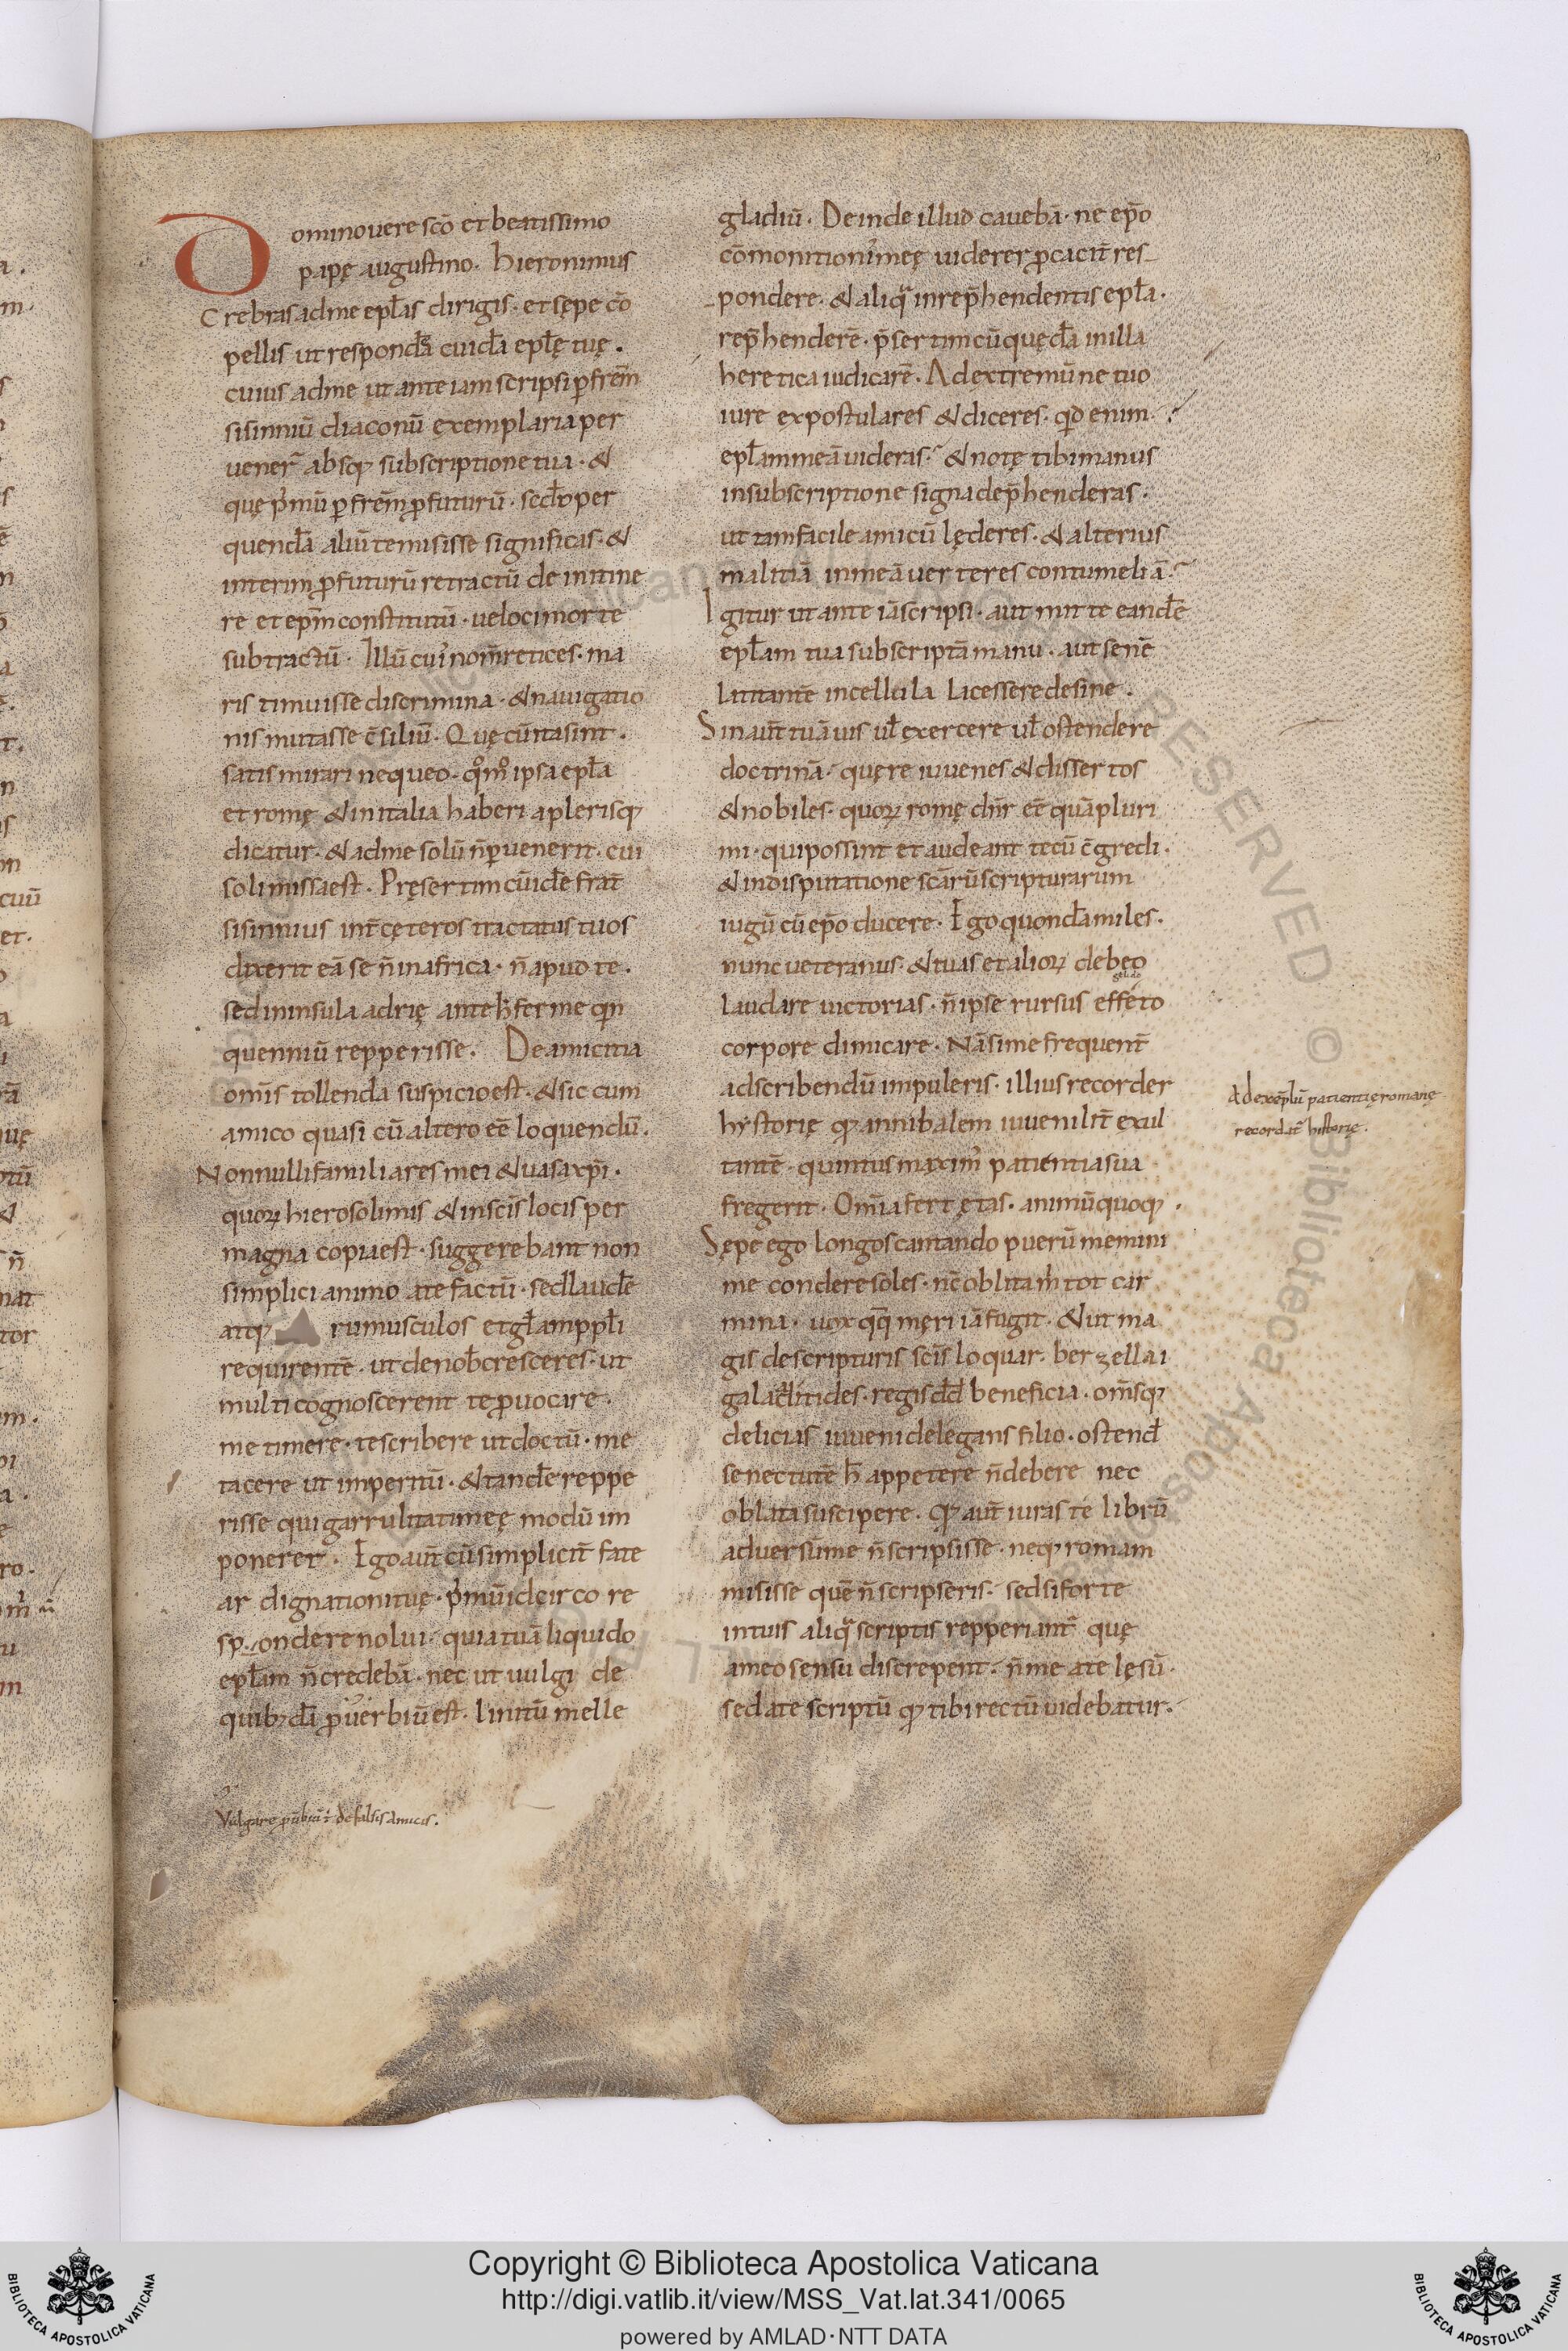 Dominouere sc̄o et beatissimo
papę augustino. Hieronimus
Crebras adme epl̄as dirigis. et sępe cō
pellis ut respondeā cuid̄a epl̄ę tuę.
cuius adme ut ante iam scripsi ꝑ fr̄em
sisinniū diaconū exemplaria per
uener̄ absq; subscriptione tua. &
quę p̓mū ꝑ fr̄em ꝓfuturū. sed̄o per
quendā aliū te misisse significas. &
interim ꝓfuturū retractū de itine
re et ep̄m constitutū. ueloci morte
subtractū. Illū cui' nom̄ retices. ma
ris timuisse discrimina. & nauigatio
nis mutasse c̄siliū. Quę cū ita sint.
satis mirari nequeo. qōmō ipsa epl̄a
et romę & in italia haberi a plerisq;
dicatur. & adme solū n̄ ꝑuenerit. cui
soli missa est. Pręsertim cū idē frat̄
sisinnius int̄ cęteros tractatus tuos
dixerit eā se n̄ in africa. n̄ apud te.
sed in insula adrię ante h̄ ferme qin
quenniū repperisse. De amicitia
om̄is tollenda suspicio est. & sic cum
amico quasi cū altero eē loquendū.
Nonnulli familiares mei & uasa xp̄i.
quoꝝ hierosolimis & in sc̄is locis per
magna copia est. suggerebant non
simplici animo a te factū. sed laudē
atq; rumusculos et gl̄am ppl̄i
requirentē. ut de nob̄ cresceres. ut
multi cognoscerent te ꝓuocare.
me timere. te scribere ut doctū. me
tacere ut imperitū. & tandē reppe
risse qui garrulitati meę modū im
poneret. Ego aut̄ cū simplicit̄ fate
ar dignationi tuę. p̓mū idcirco re
spondere nolui. quia tuā liquido
epl̄am n̄ credebā. nec ut uulgi de
quibꝫdā ꝓuerbiū est. litū melle
Vulgare ꝓūbiū de falsis amicis.
gladiū. Deinde illud cauebā. ne ep̄o
cōmonitioni' meę uiderer ꝓcacit̄ res
pondere. & aliq̄ in rep̄hendentis epl̄a.
rep̄henderē. p̄sertim cū quędā in illa
heretica iudicarē. Ad extremū ne tuo
iure expostulares & diceres. qid enim.
epl̄am meā uideras. & notę tibi manus
in subscriptione signa dep̄henderas.
ut tam facile amicū lęderes. & alterius
malitiā in meā uerteres contumeliā.
Igitur ut ante iā scripsi. aut mitte eandē
epl̄am tua subscriptā manu. aut senē
latitantē in cellula lacessere desine.
Sin aut̄ tuā uis ul̄ exercere ul̄ ostendere
doctrinā. quęre iuuenes & dissertos
& nobiles. quoꝝ romę dn̄r eē quā pluri
mi. qui possint et audeant tecū c̄gredi.
& in disputatione sc̄arū scripturarum
iugū cū ep̄o ducere. Ego quondā miles.
nunc ueteranus. & tuas et alioꝝ debeo
laudare uictorias. n̄ ipse rursus effeto
corpore dimicare. Nā si me frequent̄
ad scribendū impuleris. illius recorder
hystorię qꝫ annibalem iuuenilit̄ exul
Ad exēplū patientię romanę
recordat̄ historię.
tantē. quintus maxim' patientia sua
fregerit. Om̄ia fert ętas. animū quoq;.
Sępe ego longos cantando puerū memini
me condere soles. nc̄ oblita m̄ tot car
mina. uox qq̄ męri iā fugit. & ut ma
gis de scripturis sc̄is loquar. berzellai
galaaditides. regis dd̄ beneficia. om̄sq;
delicias iuueni delegans filio. ostend̄
senectutē h̄ appetere n̄ debere nec
oblata suscipere. Qꝫ aut̄ iuras te librū
aduersū me n̄ scripsisse. neq; romam
misisse quē n̄ scripseris. sed si forte
in tuis aliq̄ scriptis repperiant̄ quę
a meo sensu discrepent. n̄ me a te lęsū.
sed a te scriptū qꝫ tibi rectū uidebatur.
Copyright © Biblioteca Apostolica Vaticana
http://digi.vatlib.it/view/MSS_Vat.lat.341/0065
powered by AMLAD·NTT DATA
BIBLIOTECA APOSTOLICA VATICANA
BIBLIOTECA APOSTOLICA VATICANA